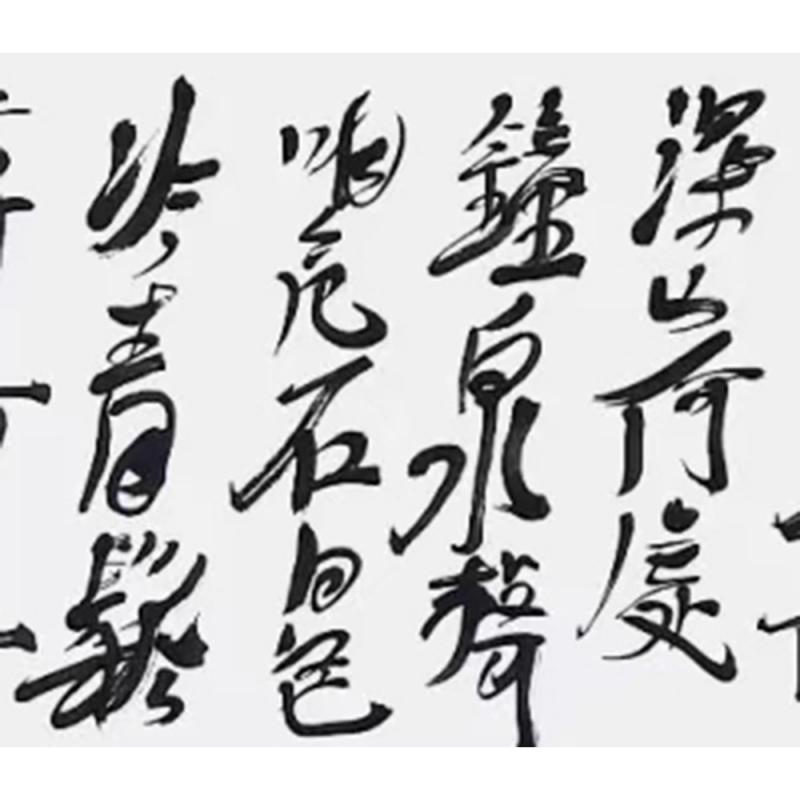 深山何處
鐘泉聲
咽危石日色
冷青鬆